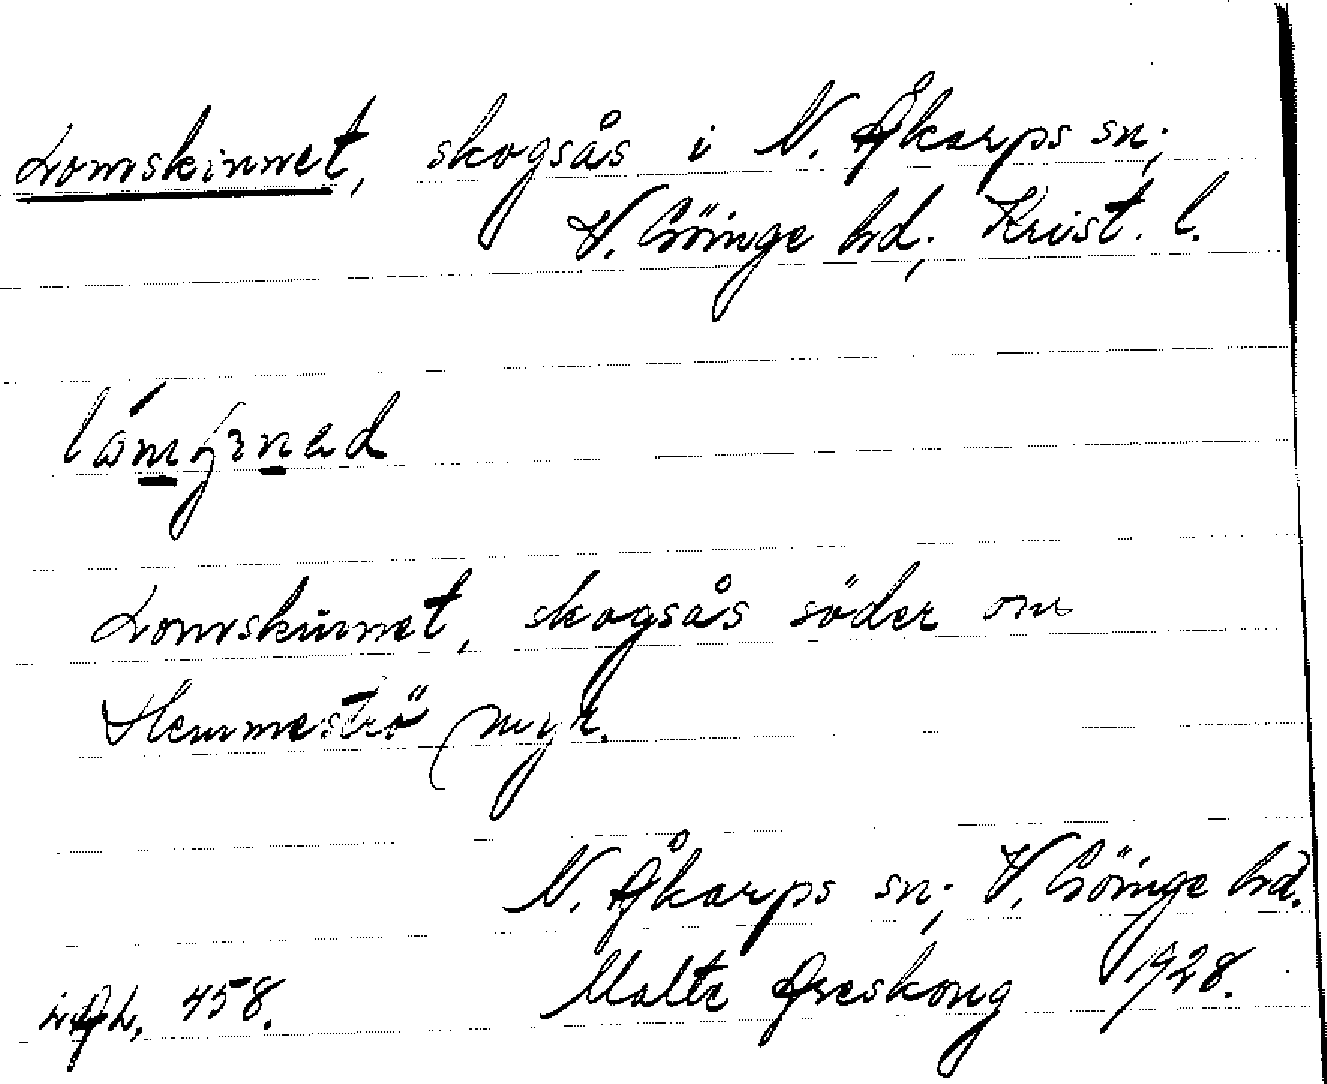 Lomskinnet, skogsås i N. Åkarps sn;
V. Göinge hd; Krist. l.
Lomskinnet, skogsås söder om
Hemmeströ myr.
N. Åkarps sn; V. Göinge hd.
458. Malte Areskoug 1928.